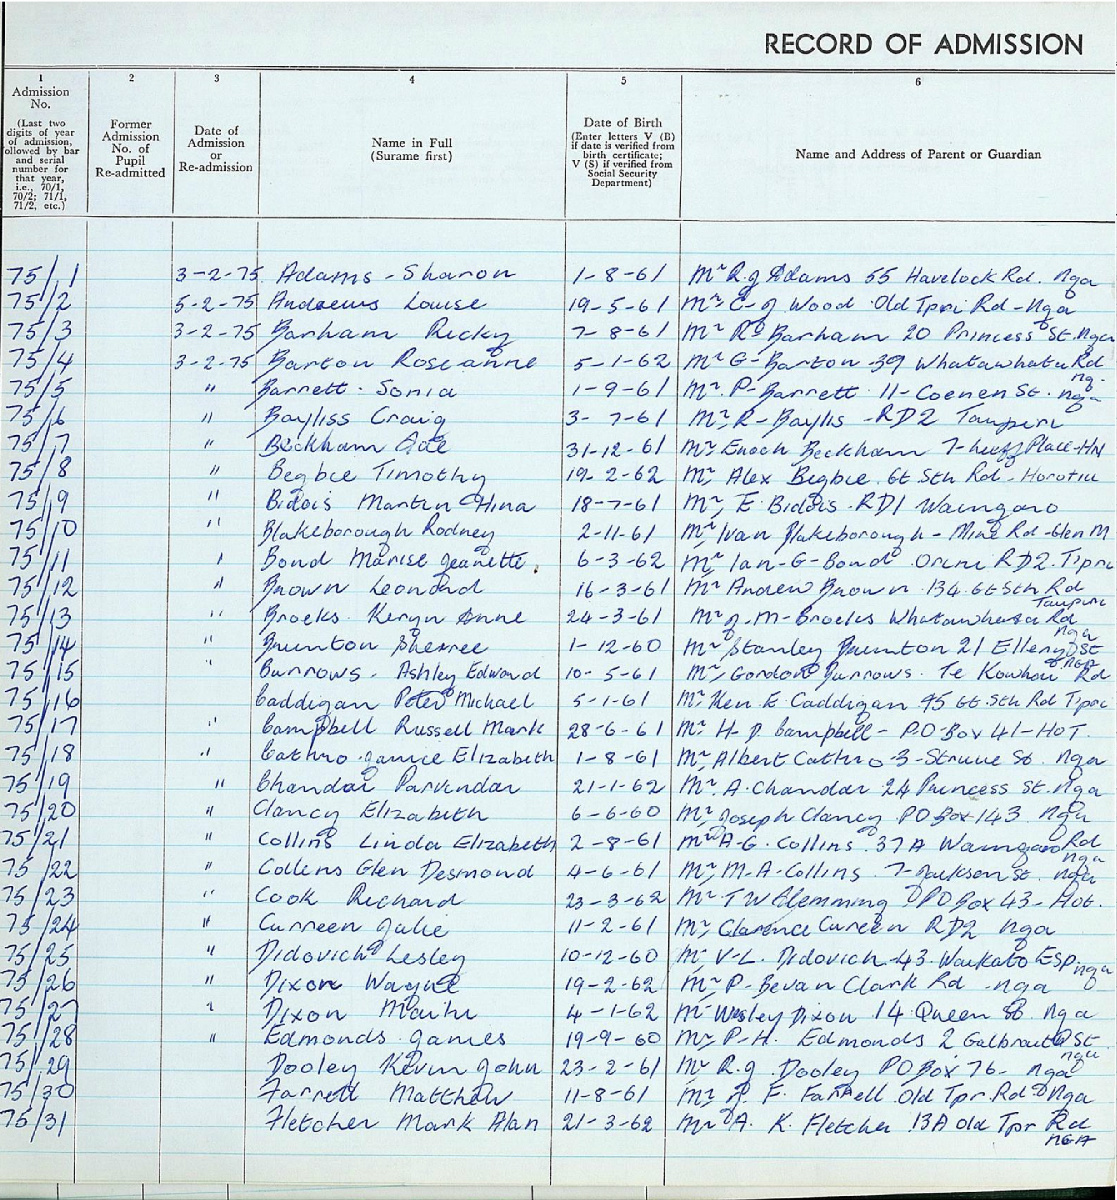 RECORD OF ADMISSION
1 2 3 4 5 6
Admission No. (Last two digits of year of admission, followed by bar and serial number for that year, i.e., 70/1, 70/2; 71/1, 71/2, etc.)
Former Admission No. of Pupil Re-admitted
Date of Admission or Re-admission
Name in Full (Surame first)
Date of Birth (Enter letters V (B) if date is verified from birth certificate; V (S) if verified from Social Security Department)
Name and Address of Parent or Guardian
75/1 3-2-75 Adams - Sharon 1-8-61 Mr R.J Adams 55 Havelock Rd. Nga
75/2 5-2-75 Andrews Louise 19-5-61 Mr C-J Wood Old Tpri Rd - Nga
75/3 3-2-75 Barham Ricky 7-8-61 Mr R Barham 20 Princess St. Nga
75/4 3-2-75 Barton Roseanne 5-1-62 Mr G- Barton - 39 Whatawhata Rd Ng-
75/5 " Barrett - Sonia 1-9-61 Mr P- Barrett 11- Coenen St. nga
75/6 " Bayliss Craig 3-7-61 Mr R- Bayliss - RD2 Taupiri
75/7 " Beckham 31-12-61 Mr Enoch Beckham 7- Place-HN
75/8 " Begbie Timothy 19-2-62 Mr Alex Begbie. Gt Sth Rd - Horotiu
75/9 " Bidois Martin Hina 18-7-61 Mr E. Bidois. RD1 Waingaro
75/10 " Blakeborough Rodney 2-11-61 Mr Ivan Blakeborough - Mine Rd - Glen M
75/11 " Bond Marise Jeanette 6-3-62 Mr Ian-G-Bond Orini RD2. Tipri
75/12 " Brown Leonard 16-3-61 Mr Andrew Brown 134 Gt Sth Rd Taupiri
75/13 " Brocks Keryn Anne 24-3-61 Mr J.M-Brocks Whatawhata Rd nga
75/14 " Brunton Sherree 1-12-60 Mr Stanley Brunton 21 Ellery St NGA
75/15 " Burrows. Ashley Edward 10-5-61 Mr Gordon Burrows. Te Kowhai Rd
75/16 Caddigan Peter Michael 5-1-61 Mr Ken E Caddigan 95 Gt. Sth Rd Tpri
75/17 " Campbell Russell Mark 28-6-61 Mr H- Campbell - P.O-Box 41-HOT.
75/18 " Cathro Janice Elizabeth 1-8-61 Mr Albert Cathro 3-Struve St. Nga
75/19 " Chandar Parvindar 21-1-62 Mr A. Chandar 24 Princess St. Nga
75/20 " Clancy Elizabeth 6-6-60 Mr Joseph Clancy PO Box 143 Nga
75/21 " Collins Linda Elizabeth 2-8-61 Mr A-G. Collins. 37A Waingaro Rd nga
75/22 " Collins Glen Desmond 4-6-61 Mr M.A-Collins. 7-Jackson St. nga
75/23 " Cook Richard 23-3-62 Mr T W Clemming PO Box 43- Hot.
75/24 " Curreen Julie 11-2-61 Mr Clarence Cureen RD2 Nga
75/25 " Didovich Lesley 10-12-60 Mr V-L. Didovich -43. Waikato Esp. nga
75/26 " Dixon Wayne 19-2-62 Mr P- Bevan Clark Rd - nga
75/27 " Dixon 4-1-62 Mr Wesley Dixon 14 Queen St. Nga
75/28 " Edmonds James 19-9-60 Mr P-H. Edmonds 2 Galbraith St nga
75/29 Dooley Kevin John 23-2-61 Mr R.J Dooley PO Box 76- nga
75/30 Farrell Matthew 11-8-61 Mr F. Farrell Old Tpr. Rd Nga
75/31 Fletcher Mark Alan 21-3-62 Mr A. K. Fletcher 13A old Tpr Rd NGA